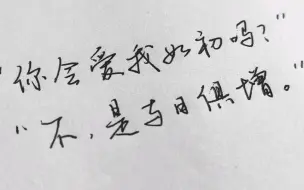 "你会爱我如初吗?"
"不，是与日俱增。"